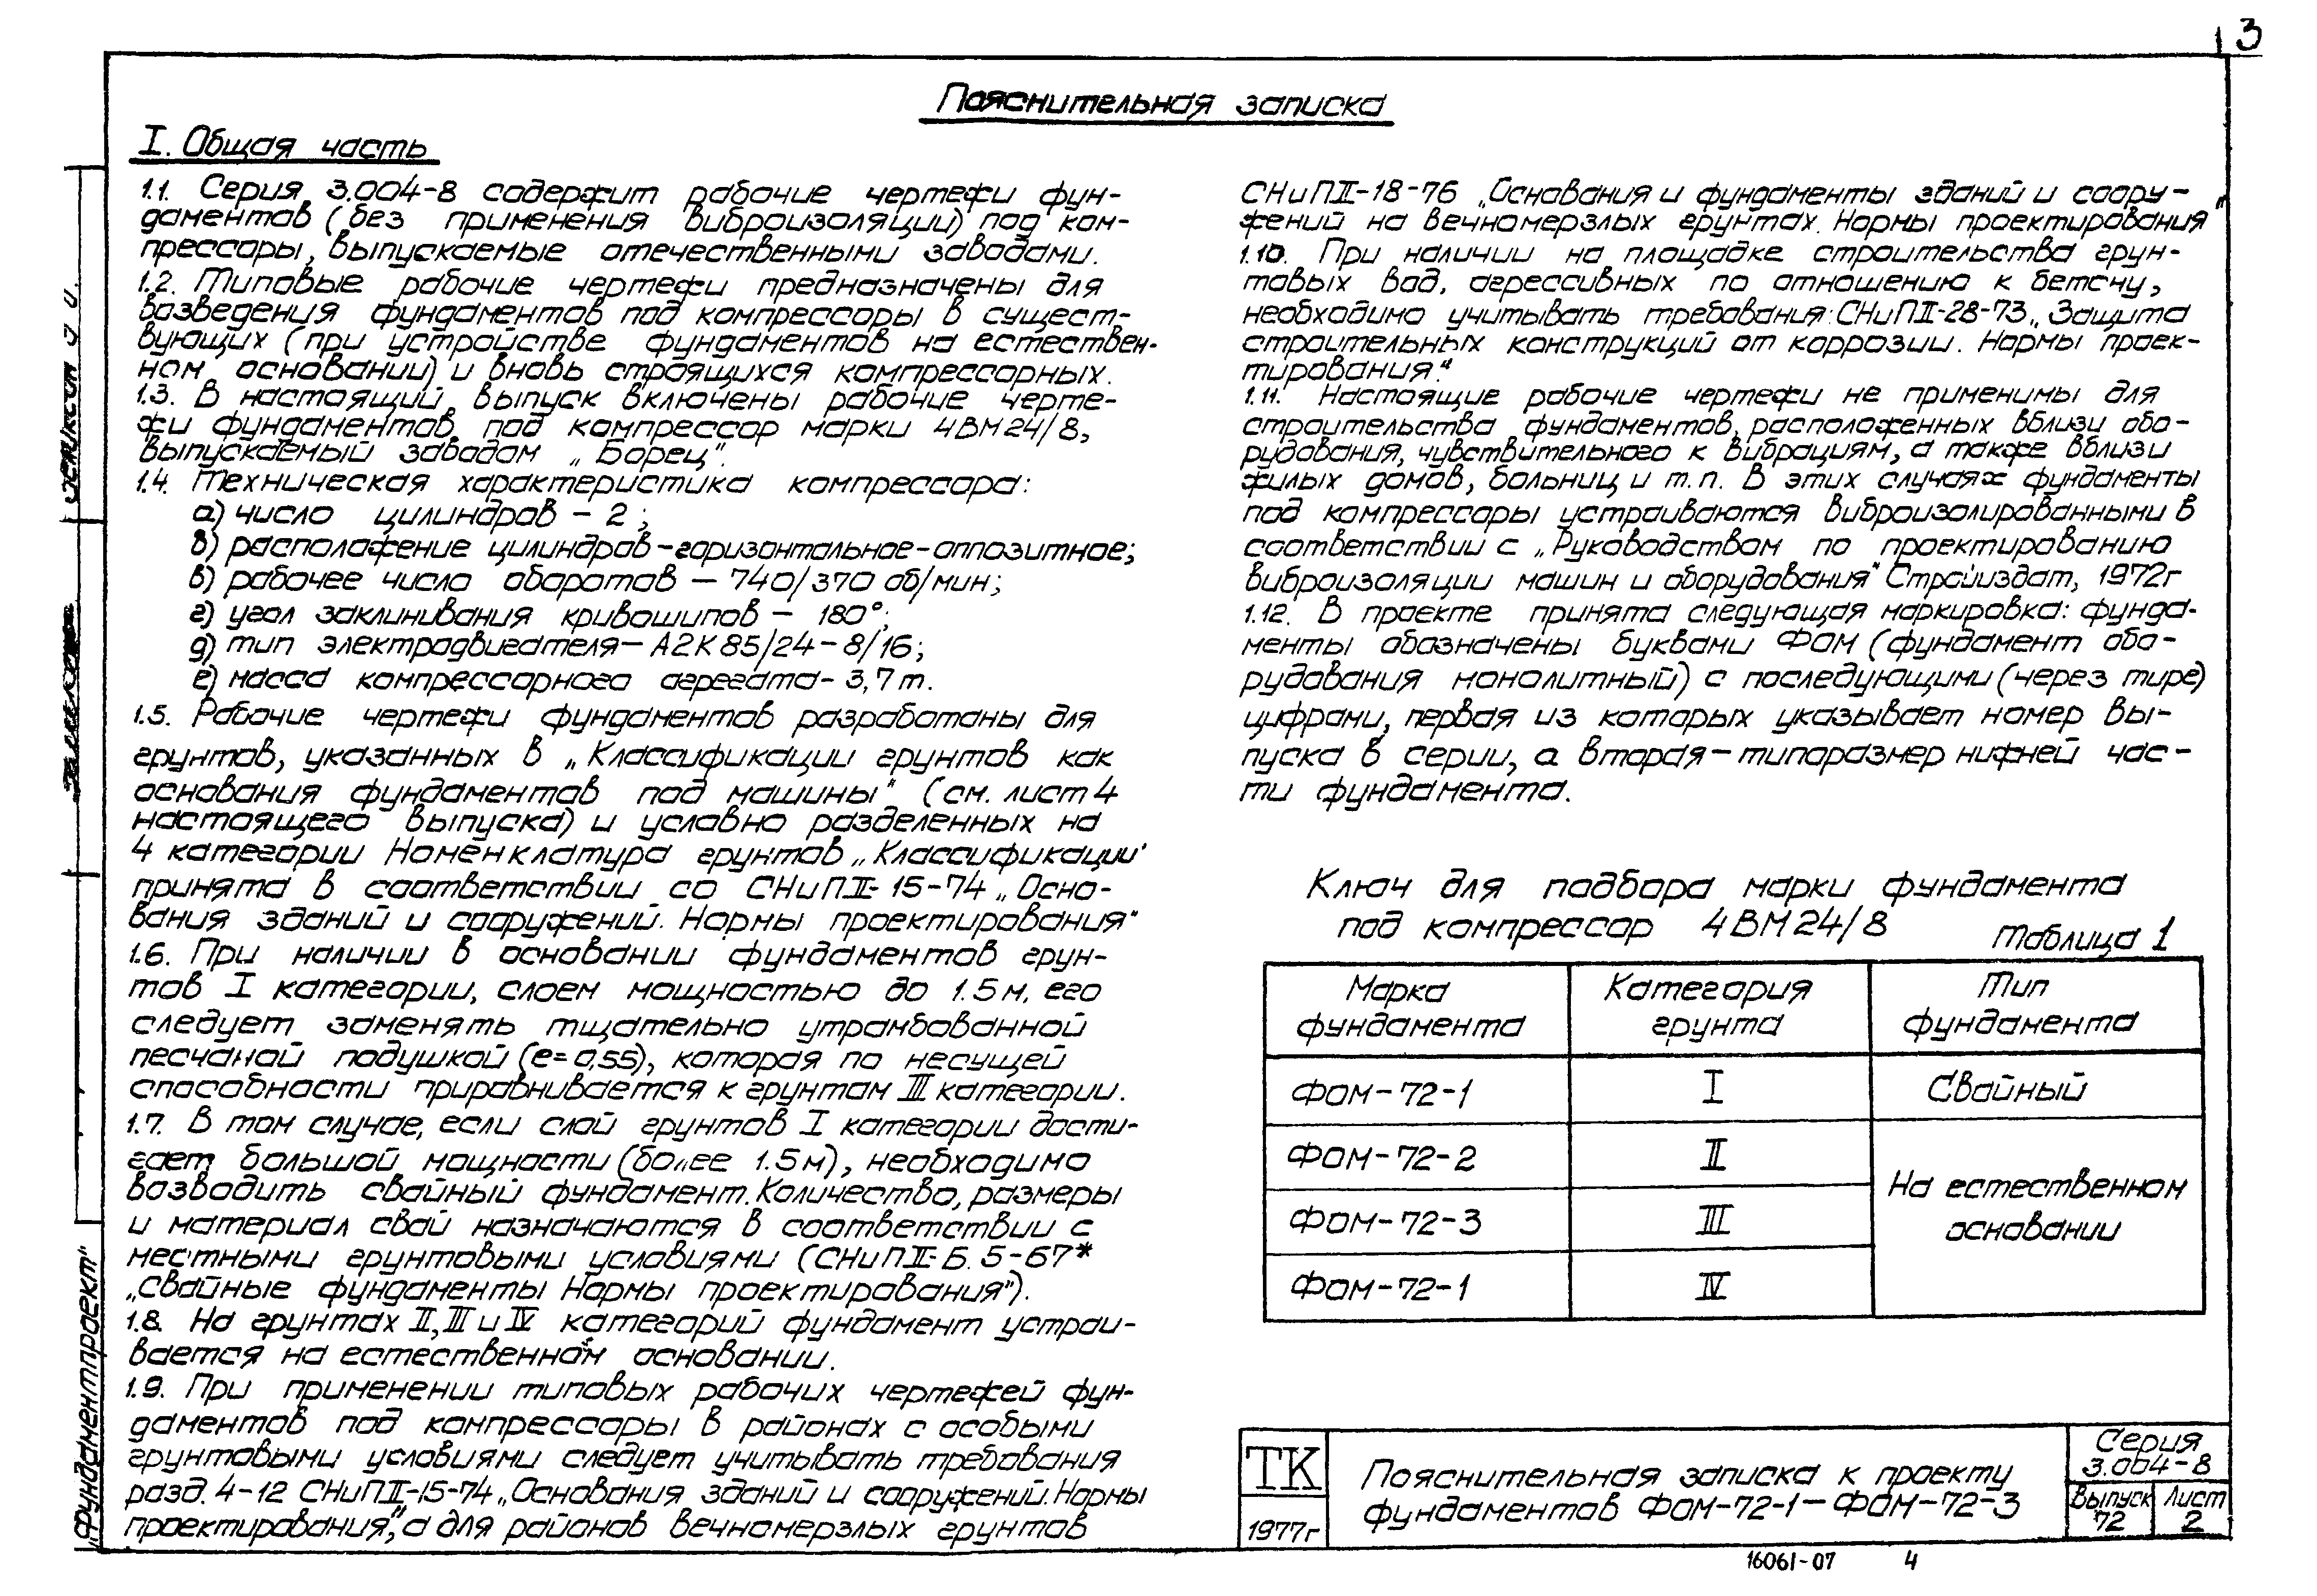 3
Пояснительная записка
I. Общая часть
1.1. Серия 3.004-8 содержит рабочие чертежи фун-
даментов (без применения виброизоляции) под ком-
прессоры, выпускаемые отечественными заводами.
1.2. Типовые рабочие чертежи предназначены для
возведения фундаментов под компрессоры в сущест-
вующих (при устройстве фундаментов на естествен-
ном основании) и вновь строящихся компрессорных.
1.3. В настоящий выпуск включены рабочие черте-
жи фундаментов под компрессор марки 4ВМ24/8,
выпускаемый заводом „Борец".
1.4. Техническая характеристика компрессора:
а) число цилиндров - 2;
б) расположение цилиндров - горизонтальное - оппозитное;
в) рабочее число оборотов — 740/370 об/мин;
г) угол заклинивания кривошипов — 180°;
д) тип электродвигателя — А2К85/24-8/16;
е) масса компрессорного агрегата - 3,7т.
1.5. Рабочие чертежи фундаментов разработаны для
грунтов, указанных в „Классификации грунтов как
основания фундаментов под машины" (см. лист 4
настоящего выпуска) и условно разделенных на
4 категории Номенклатура грунтов „Классификации"
принята в соответствии со СНиП II-15-74 „Осно-
вания зданий и сооружений. Нормы проектирования"
1.6. При наличии в основании фундаментов грун-
тов I категории, слоем мощностью до 1.5м, его
следует заменять тщательно утрамбованной
песчаной подушкой (е=0,55), которая по несущей
способности приравнивается к грунтам III категории.
1.7. В том случае, если слой грунтов I категории дости-
гает большой мощности (более 1.5м), необходимо
возводить свайный фундамент. Количество, размеры
и материал свай назначаются в соответствии с
местными грунтовыми условиями (СНиП II-Б. 5-67*
„Свайные фундаменты Нормы проектирования").
1.8. На грунтах II, III и IV категорий фундамент устраи-
вается на естественном основании.
1.9. При применении типовых рабочих чертежей фун-
даментов под компрессоры в районах с особыми
грунтовыми условиями следует учитывать требования
разд. 4-12 СНиП II-15-74 „Основания зданий и сооружений. Нормы
проектирования", а для районов вечномерзлых грунтов
СНиП II-18-76 „Основания и фундаменты зданий и соору-
жений на вечномерзлых грунтах. Нормы проектирования"
1.10. При наличии на площадке строительства грун-
товых вод, агрессивных по отношению к бетону,
необходимо учитывать требования: СНиП II-28-73 „Защита
строительных конструкций от коррозии. Нормы проек-
тирования."
1.11. Настоящие рабочие чертежи не применимы для
строительства фундаментов, расположенных вблизи обо-
рудования, чувствительного к вибрациям, а также вблизи
жилых домов, больниц и т.п. В этих случаях фундаменты
под компрессоры устраиваются виброизолированными в
соответствии с „Руководством по проектированию
виброизоляции машин и оборудования" Стройиздат, 1972г
1.12. В проекте принята следующая маркировка: фунда-
менты обозначены буквами ФОМ (фундамент обо-
рудования монолитный) с последующими (через тире)
цифрами, первая из которых указывает номер вы-
пуска в серии, а вторая — типоразмер нижней час-
ти фундамента.
Ключ для подбора марки фундамента
под компрессор 4ВМ24/8
Таблица 1
Марка фундамента Категория грунта Тип фундамента
ФОМ-72-1 I Свайный
ФОМ-72-2 II На естественном
ФОМ-72-3 III основании
ФОМ-72-1 IV
ТК
1977г
Пояснительная записка к проекту
фундаментов ФОМ-72-1 — ФОМ-72-3
Серия
3.004-8
Выпуск
72
Лист
2
16061-07 4
„Фундаментпроект"